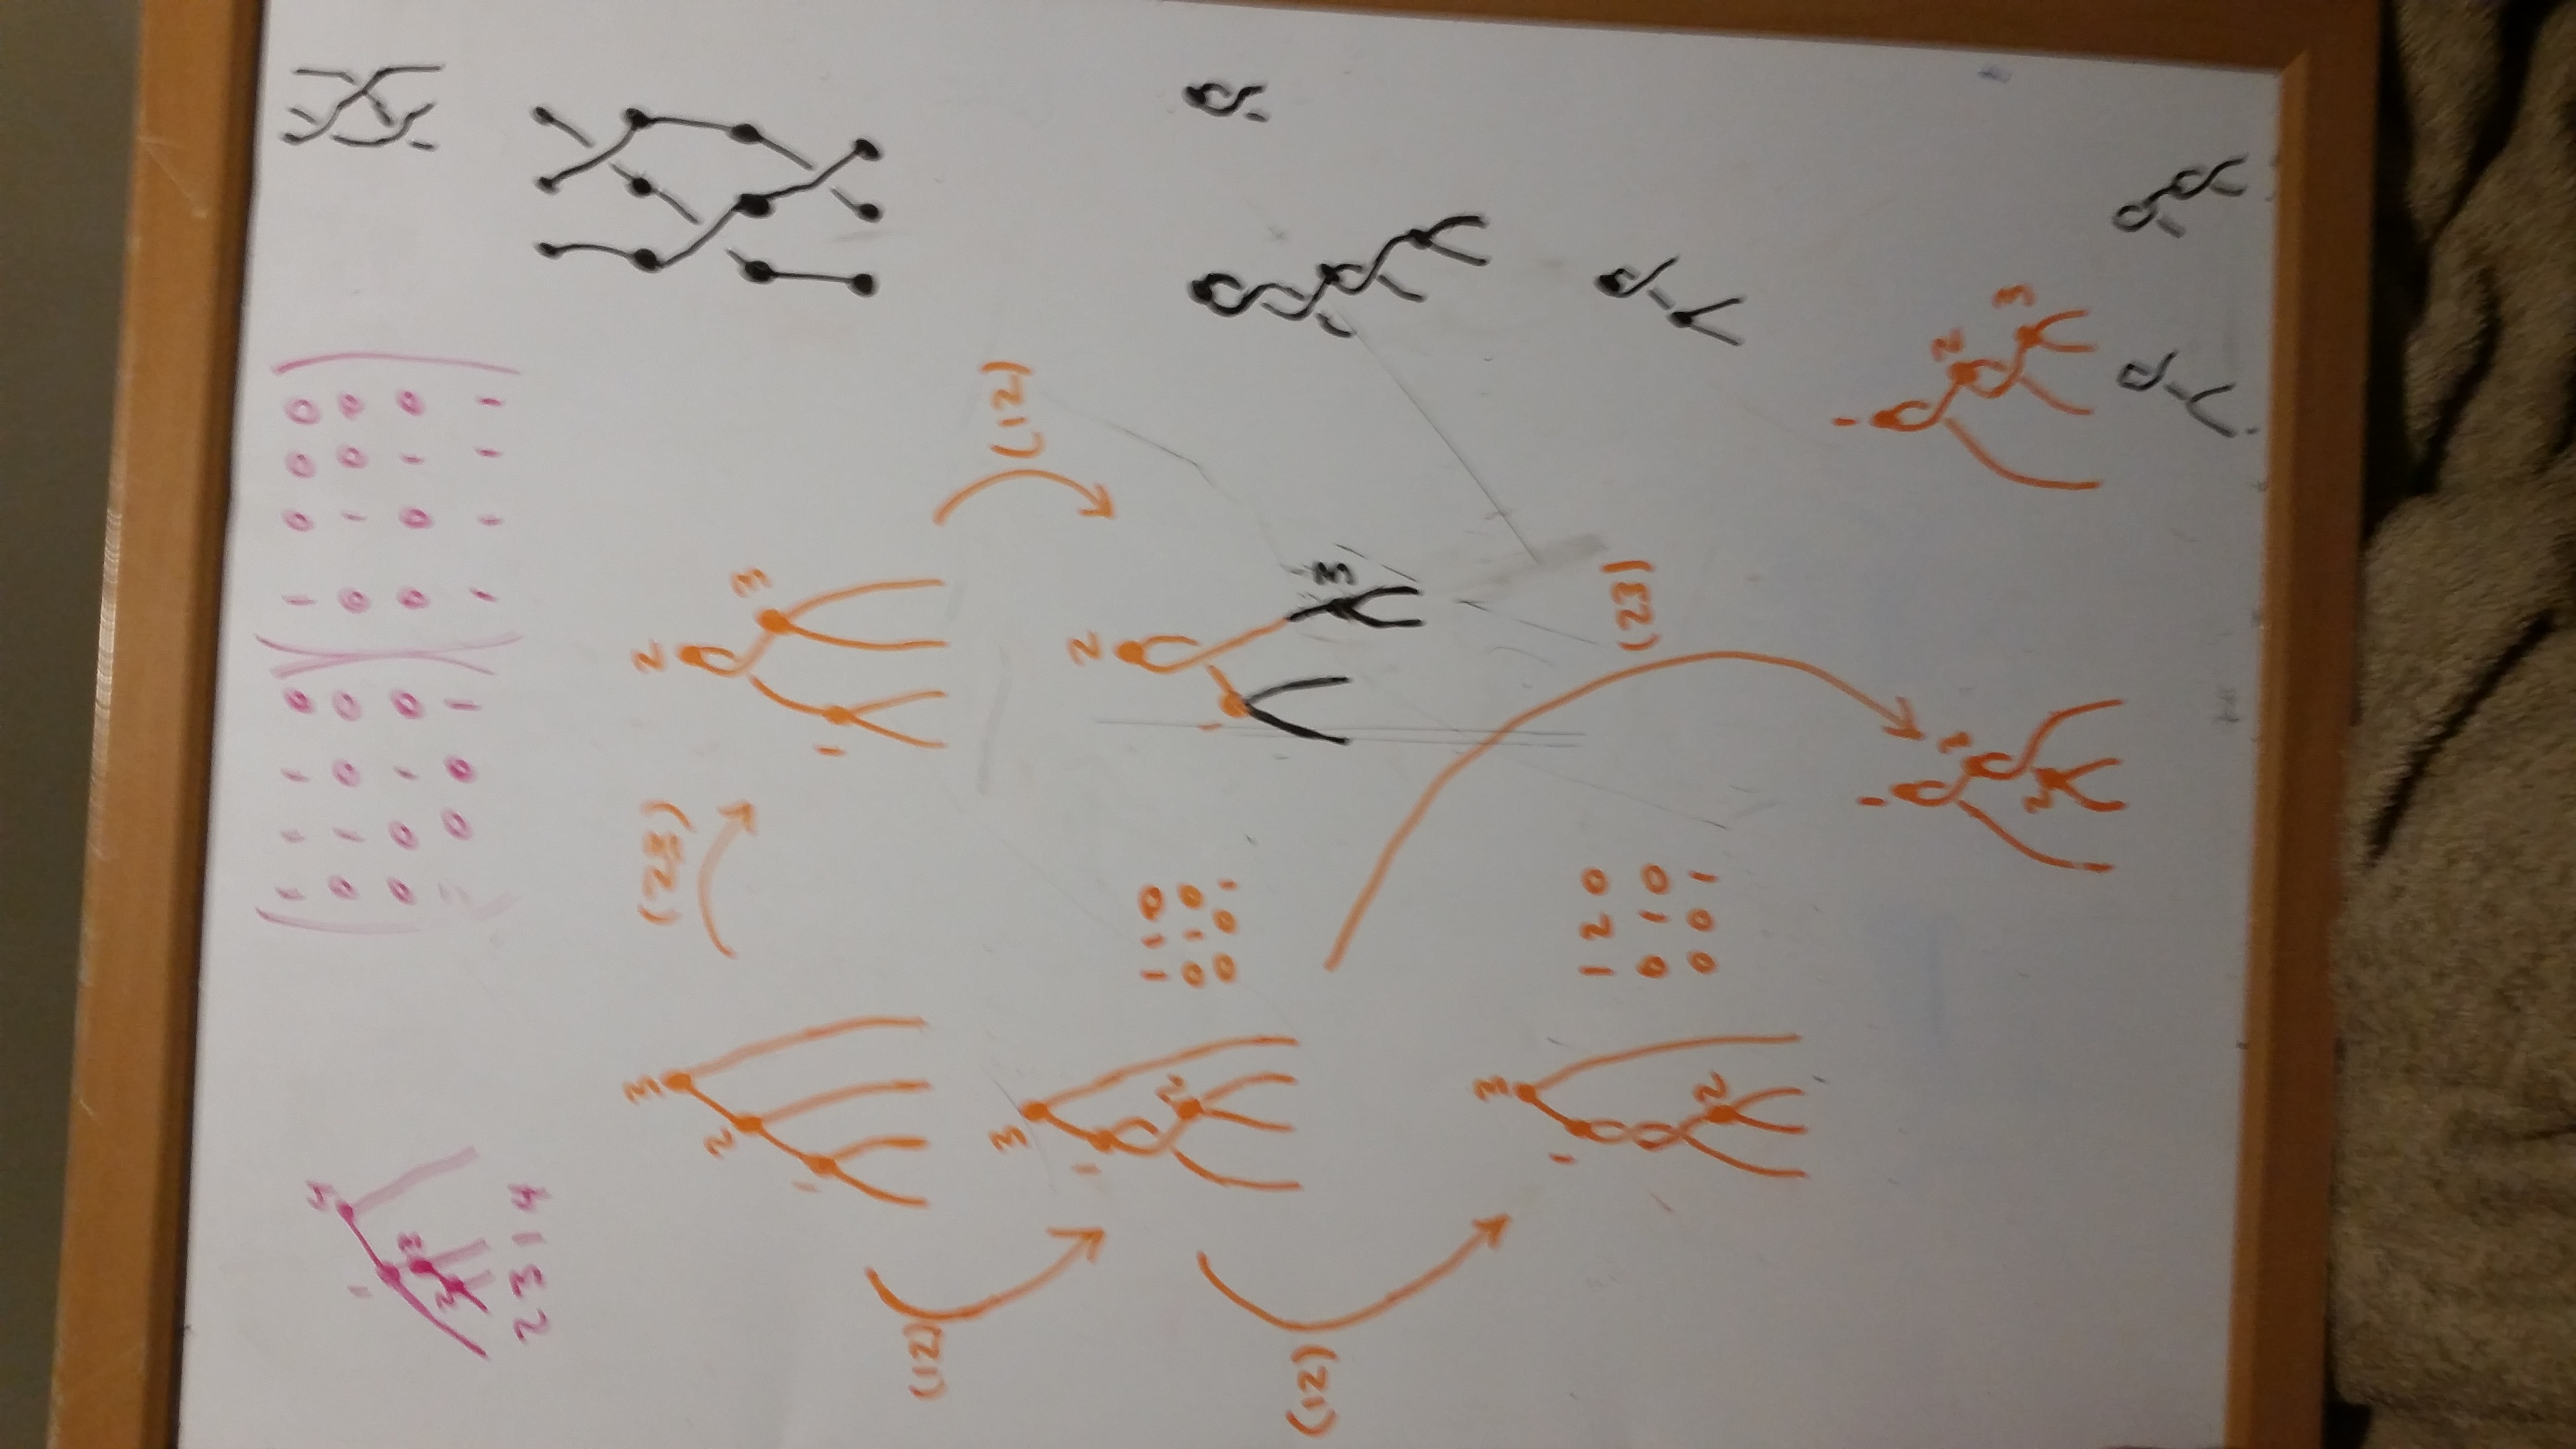 4
1
3
2 3 1 4
1 1 1 0 1 0 0 0
0 1 0 0 0 1 0 0
0 0 1 0 0 0 1 0
0 0 1 1 1 1 1
3
2
1
(23)
2
3
1
(12)
(12)
3
1
2
1 1 0
0 1 0
0 0 1
2
1
3
(12)
3
1
2
1 2 0
0 1 0
0 0 1
(23)
1
3
2
1
2
3